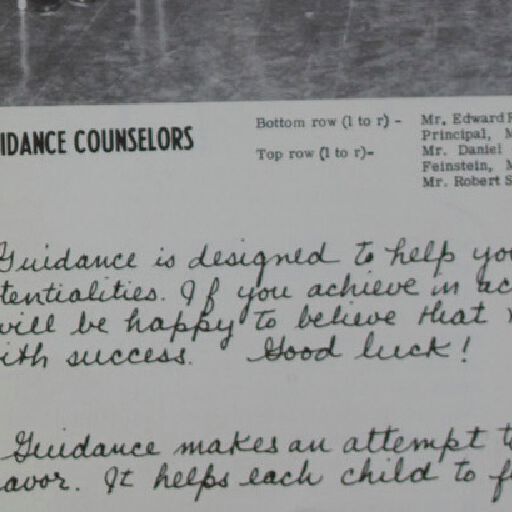 IDANCE COUNSELORS
Bottom row (l to r) - Mr. Edward
Principal,
Top row (l to r)- Mr. Daniel
Feinstein,
Mr. Robert S
Guidance is designed to help you
tentialities. If you achieve in ac
will be happy to believe that
ith success. Good luck!
Guidance makes an attempt t
avor. It helps each child to f